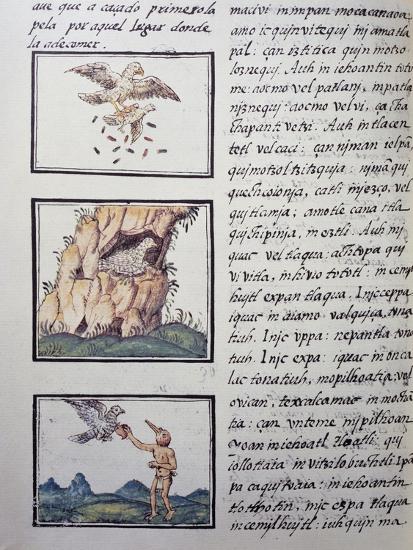 aue que a caçado primero la
pela por aquel lugar donde
la ade comer.
macivi in impan moca canaoa:
amo ic quinvitequi in jamatla
pal: çan iztitica quin motzo
loznequi. Auh in iehoantin toto
me: aocmo vel patlanj, in patla
njznequj: aocmo vel vi, ça ca
chapantivetzi. Auh in tla cen
tetl vel caci: çan njman ielpā
quimotzoltzitzquja: njmā quj
quechcoionja, catli in jezco, vel
quiticmja, amo tle cana tla
quichipinja, in eztli. Auh in j
quac vel tlaqua: achtopa quj
vivitla, in hivio tototl: in cem
ilhuitl expan tlaqua. Injc ceppa
iquac in aiamo valquiça, tona
tiuh. Injc vppa: nepantla tona
tiuh. Injc expa: iquac in onca
lac tonatiuh, mopilhoatia: vel
ovican, texcalcamac in mochā
tia: çan vnteme in jpilhoan
Yoan in iehoatl tlotli: qui
iollotiaia in vitzilobuchtli. Ipā
pa ca quitoaia: in iehoantin
tlothotin, injc expa tlaqua
in cemjlhujtl: iuhqujn ma